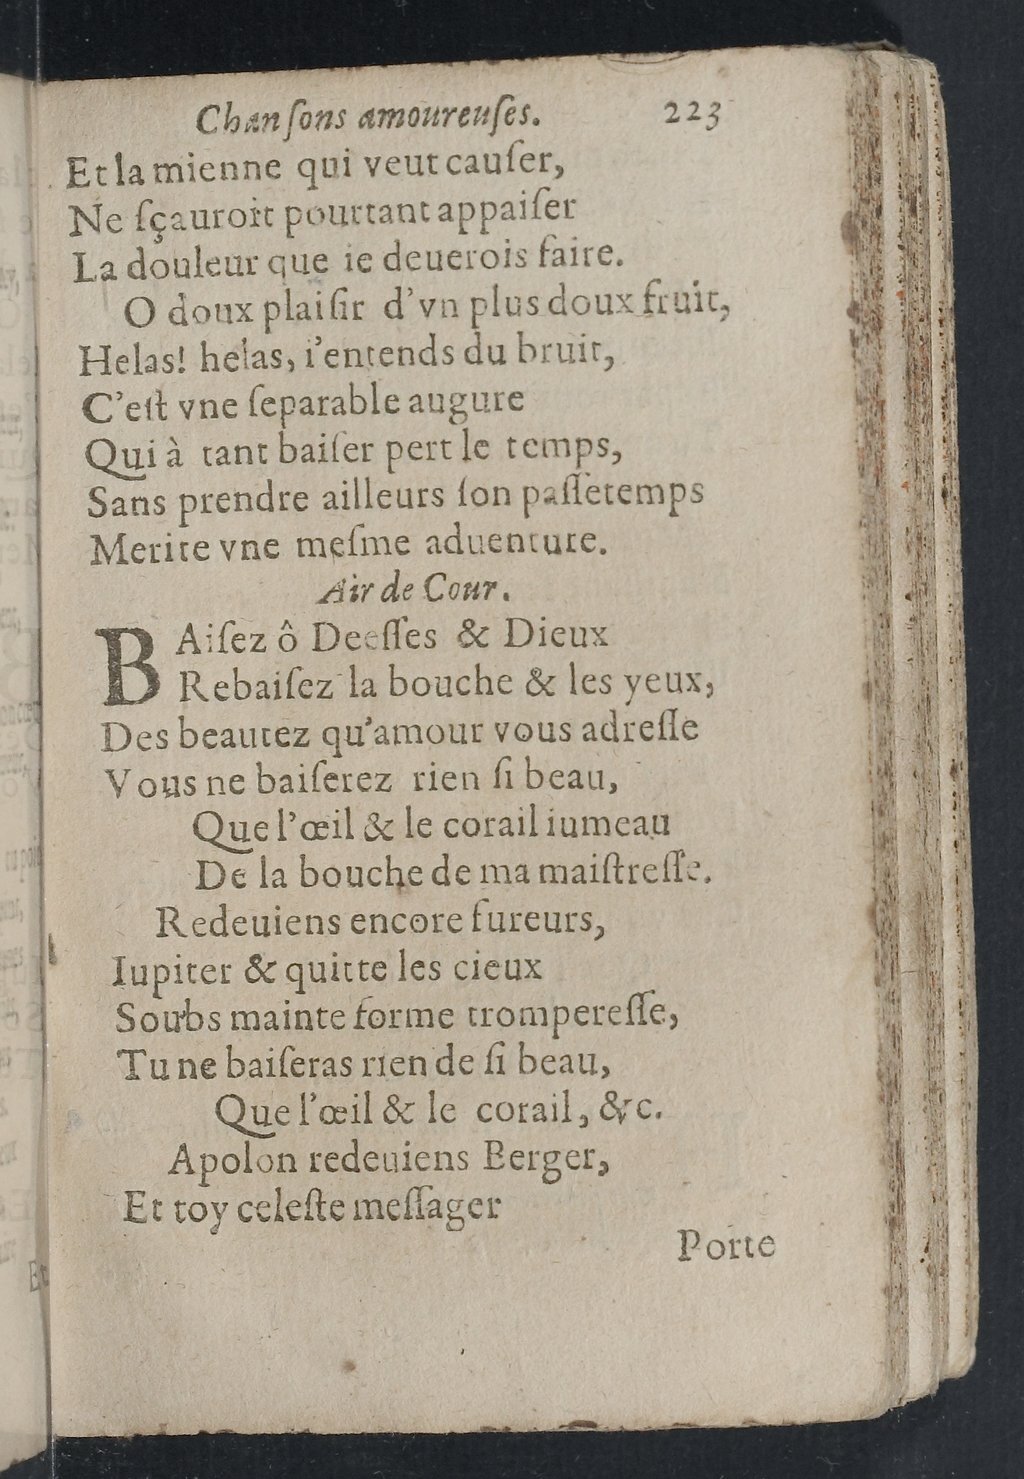 Chanſons amoureuſes. 223
Et la mienne qui veut cauſer,
Ne ſçauroit pourtant appaiſer
La douleur que ie deuerois faire.
O doux plaiſir d'vn plus doux fruit,
Helas! helas, i'entends du bruit,
C'eſt vne ſeparable augure
Qui à tant baiſer pert le temps,
Sans prendre ailleurs ſon paſſetemps
Merite vne meſme aduenture.
Air de Cour.
BAiſez ô Deeſſes & Dieux
Rebaiſez la bouche & les yeux,
Des beautez qu'amour vous adreſſe
Vous ne baiſerez rien ſi beau,
Que l'œil & le corail iumeau
De la bouche de ma maiſtreſſe.
Redeuiens encore fureurs,
Iupiter & quitte les cieux
Soubs mainte forme trompereſſe,
Tu ne baiſeras rien de ſi beau,
Que l'œil & le corail, &c.
Apolon redeuiens Berger,
Et toy celeſte meſſager
Porte